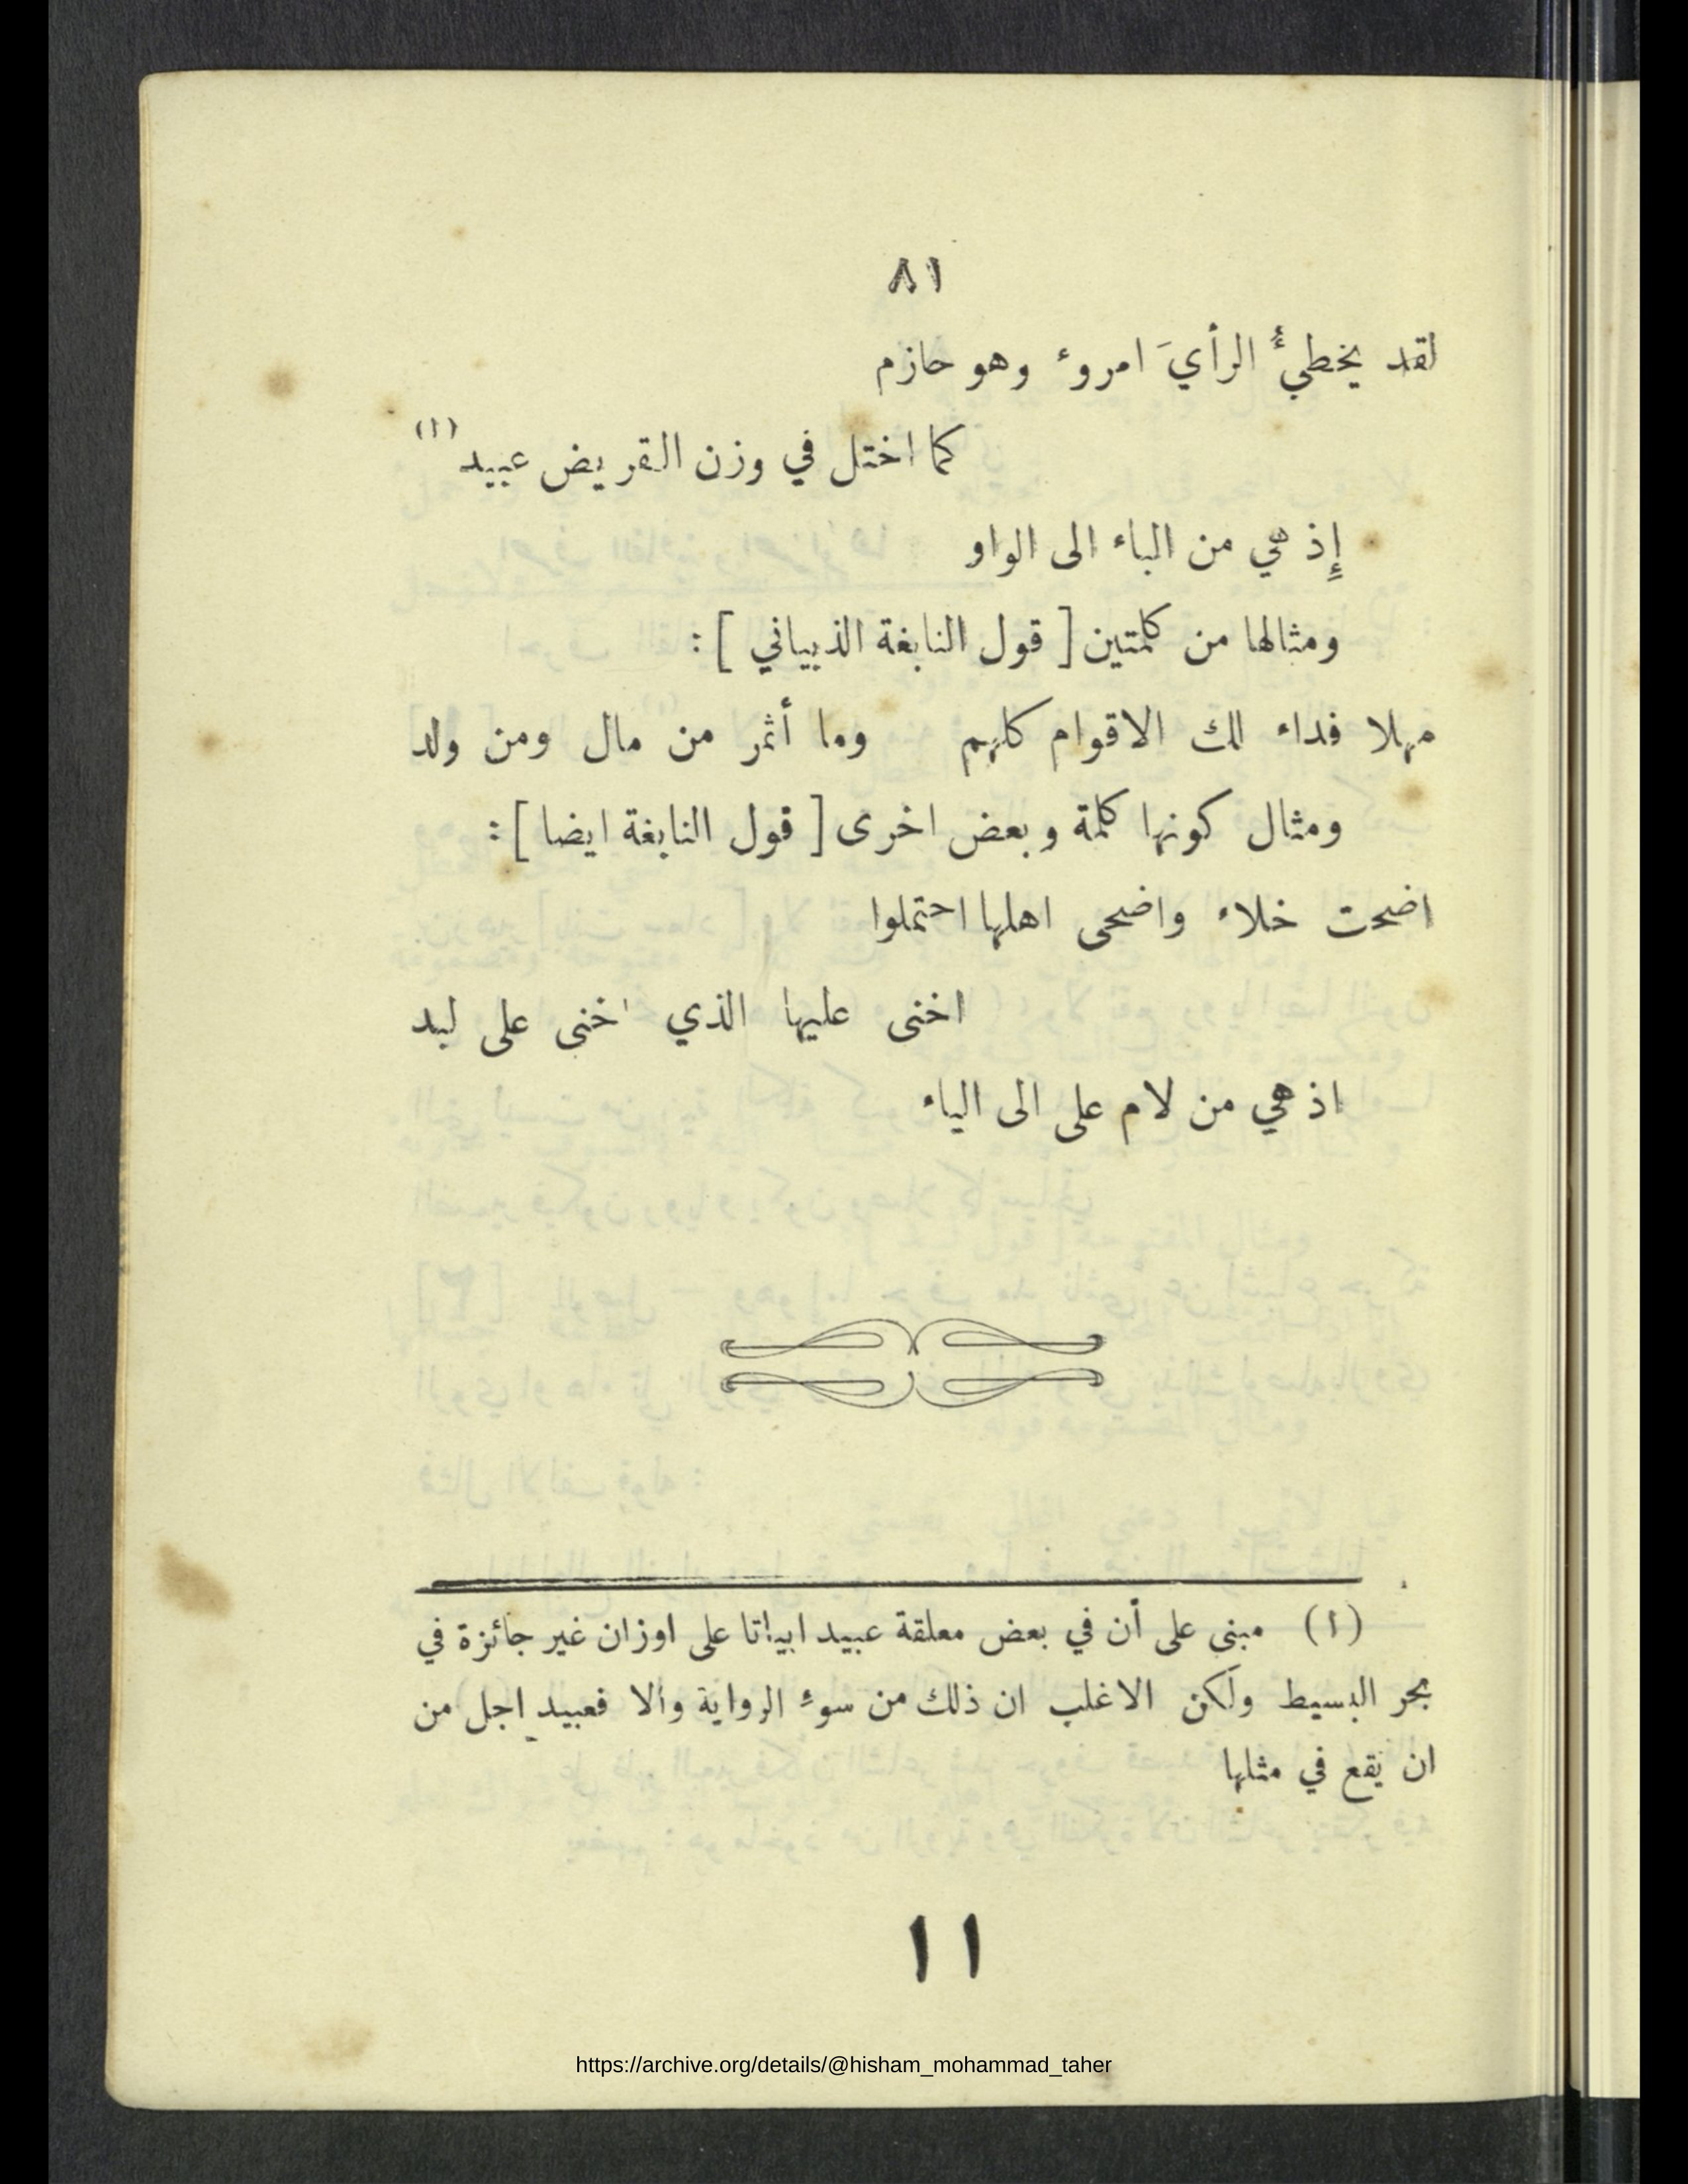 ٨١
لقد يخطيءُ الرأيَ امروء وهو حازم
كما اختل في وزن القريض عبيد (١)
إِذ هي من الباء الى الواو
ومثالها من كلمتين [ قول النابغة الذبياني ] :
مهلا فداء لك الاقوام كلهم وما أثمر من مال ومن ولد
ومثال كونها كلمة وبعض اخرى [ قول النابغة ايضا ] :
اضحت خلاء واضحى اهلها احتملوا
اخنى عليها الذي اخنى على لبد
اذ هي من لام على الى الياء
(١) مبنى على أن في بعض معلقة عبيد ابياتا على اوزان غير جائزة في
بحر البسيط ولكن الاغلب ان ذلك من سوء الرواية وألا فعبيد اجل من
ان يقع في مثلها
١١
https://archive.org/details/@hisham_mohammad_taher